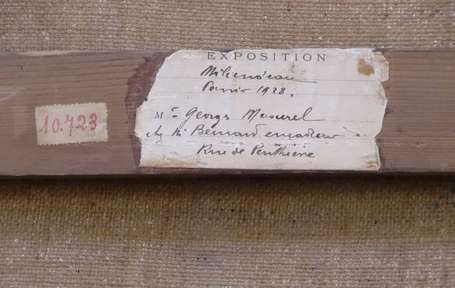 EXPOSITION
Paris 1928.
10.723
Mr Georges Masurel
Bernard encadreur
Rue de Penthièvre